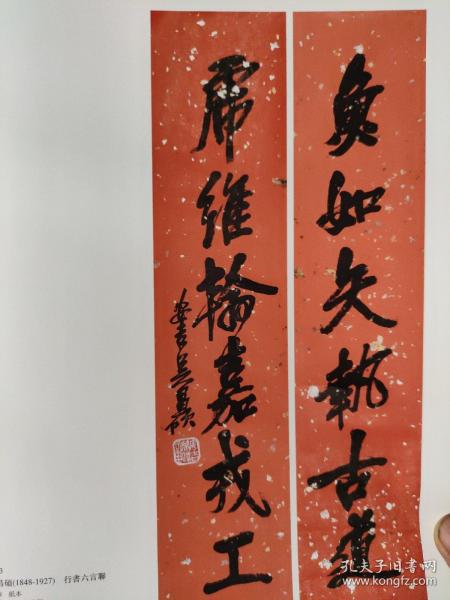 如矢執古道
維翰嘉我工
安吉吳昌碩
昌碩(1848-1927) 行書六言聯
紙本
孔夫子旧书网